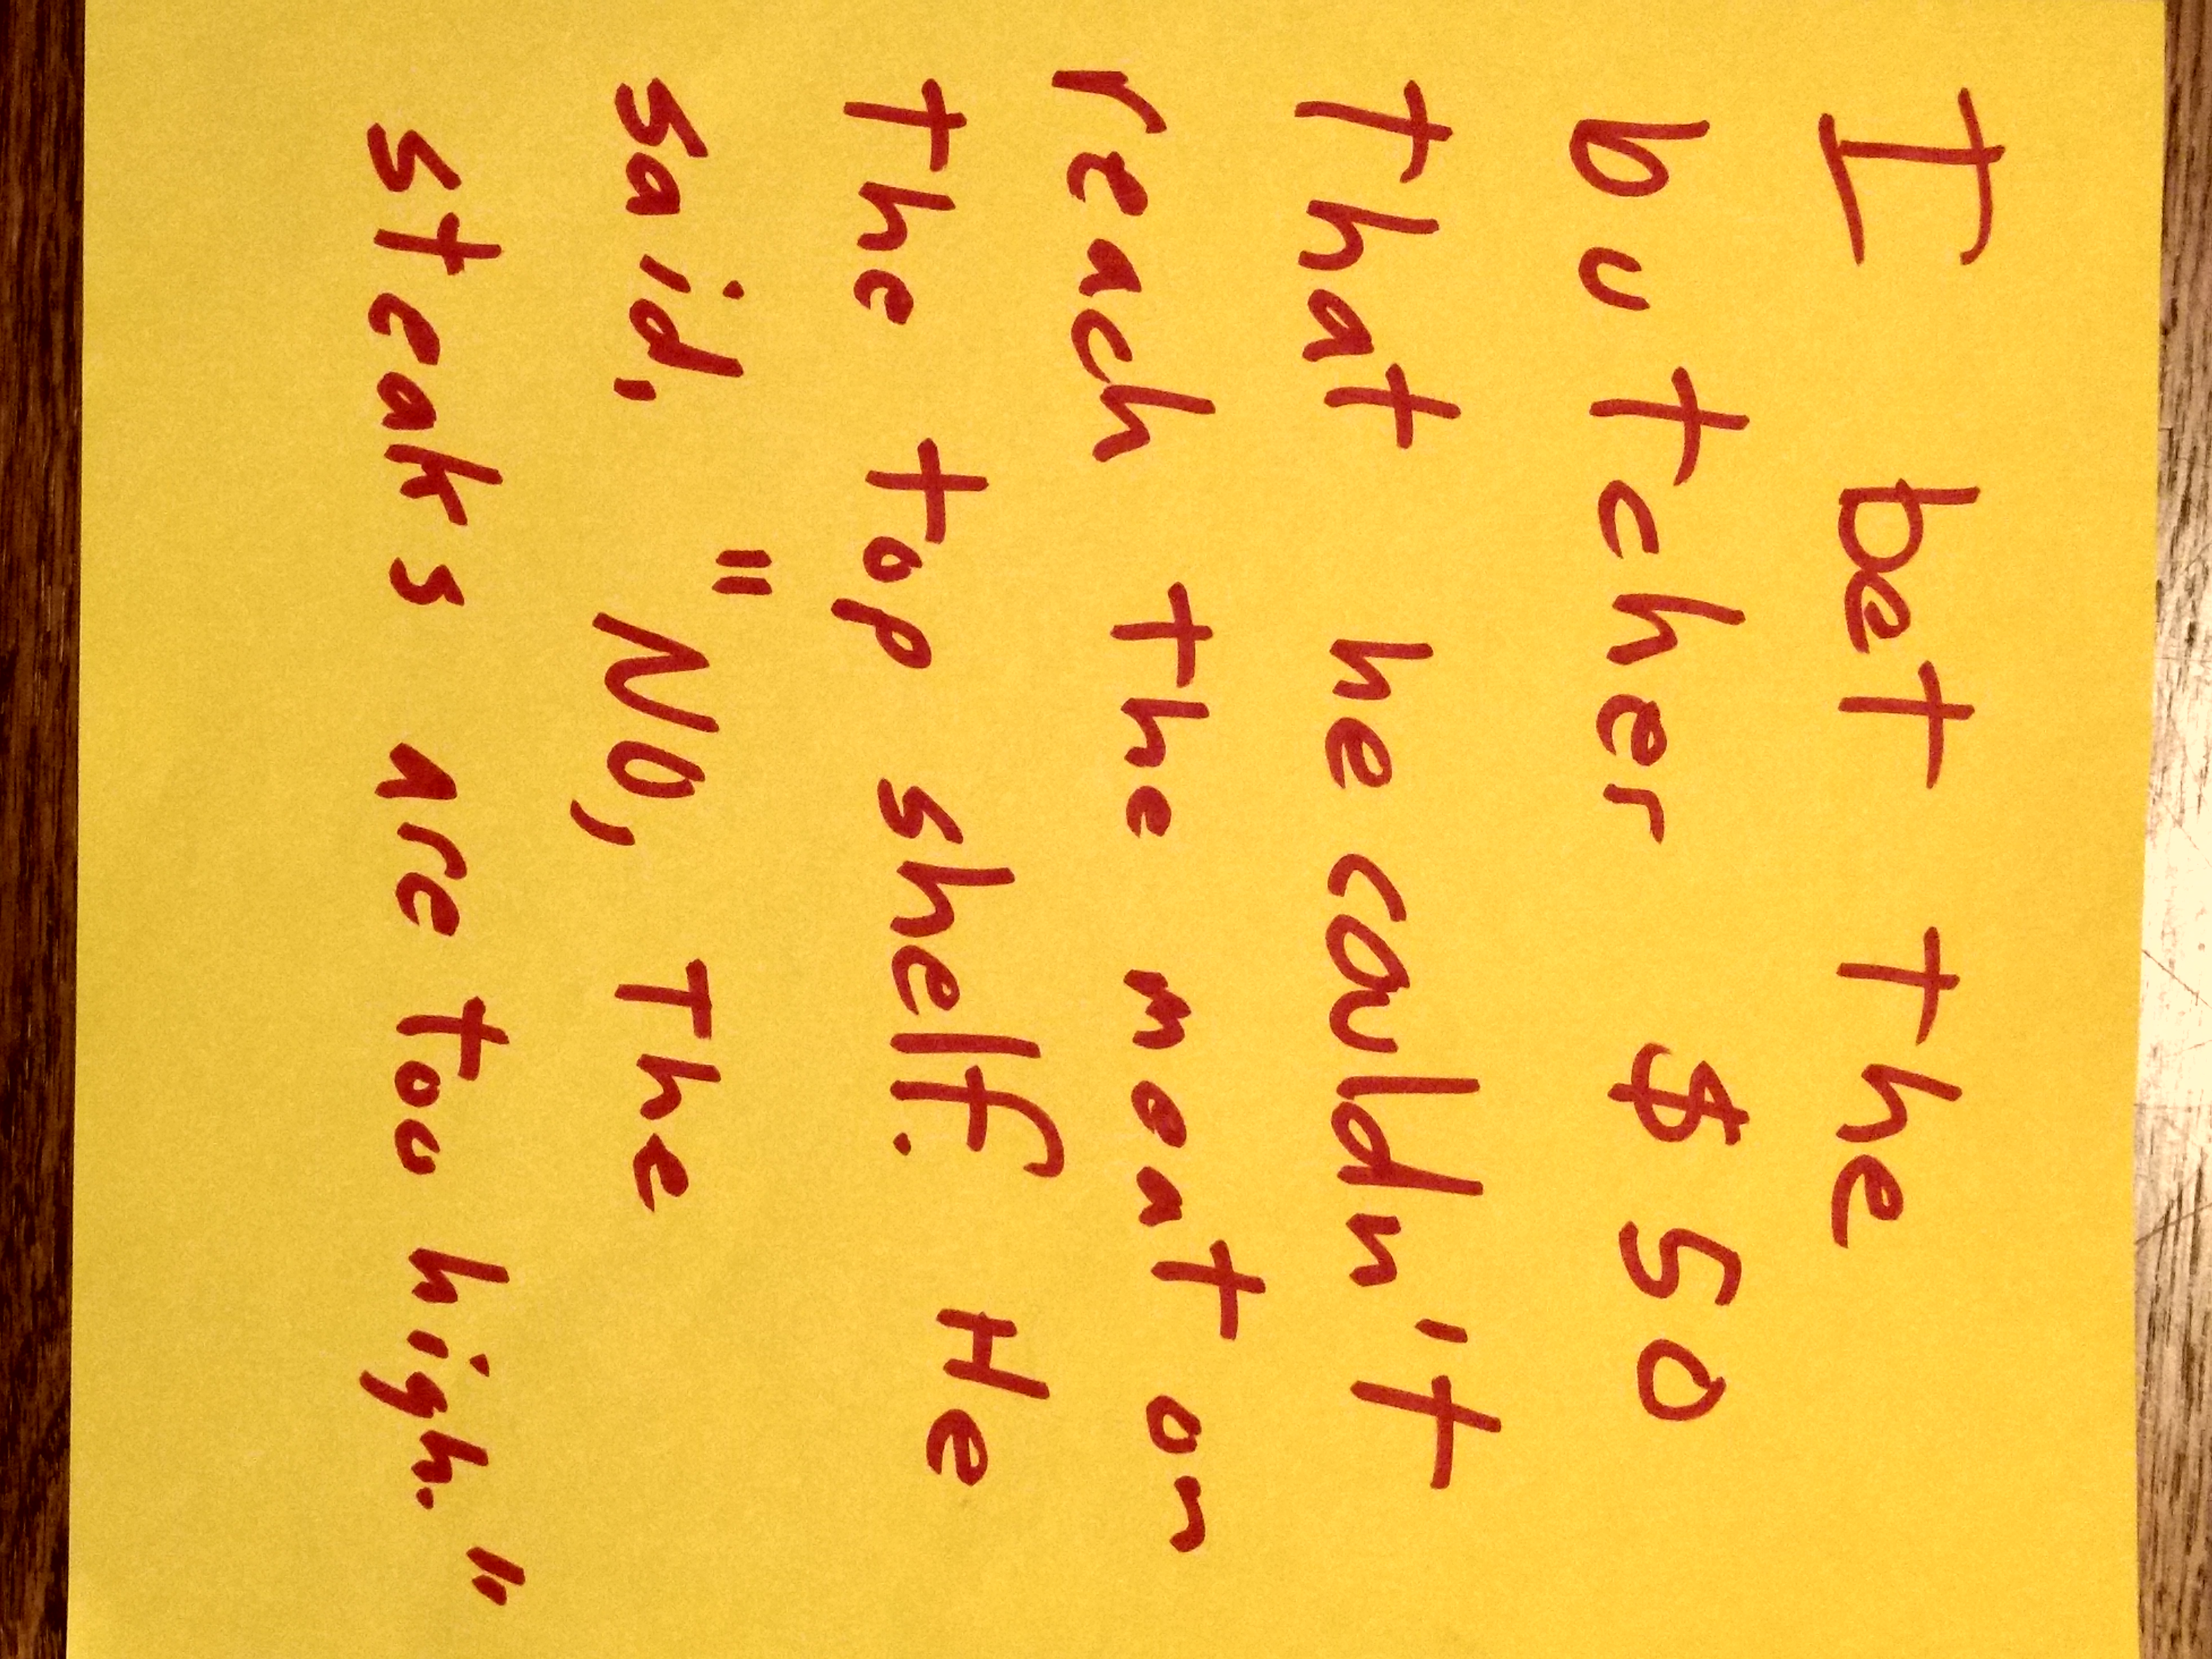 I bet the
butcher $50
that he couldn't
reach the meat on
the top shelf. He
said, "No, The
steaks are too high."